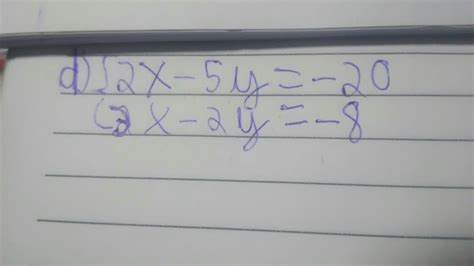 d) { 2x - 5y = -20
2x - 2y = -8